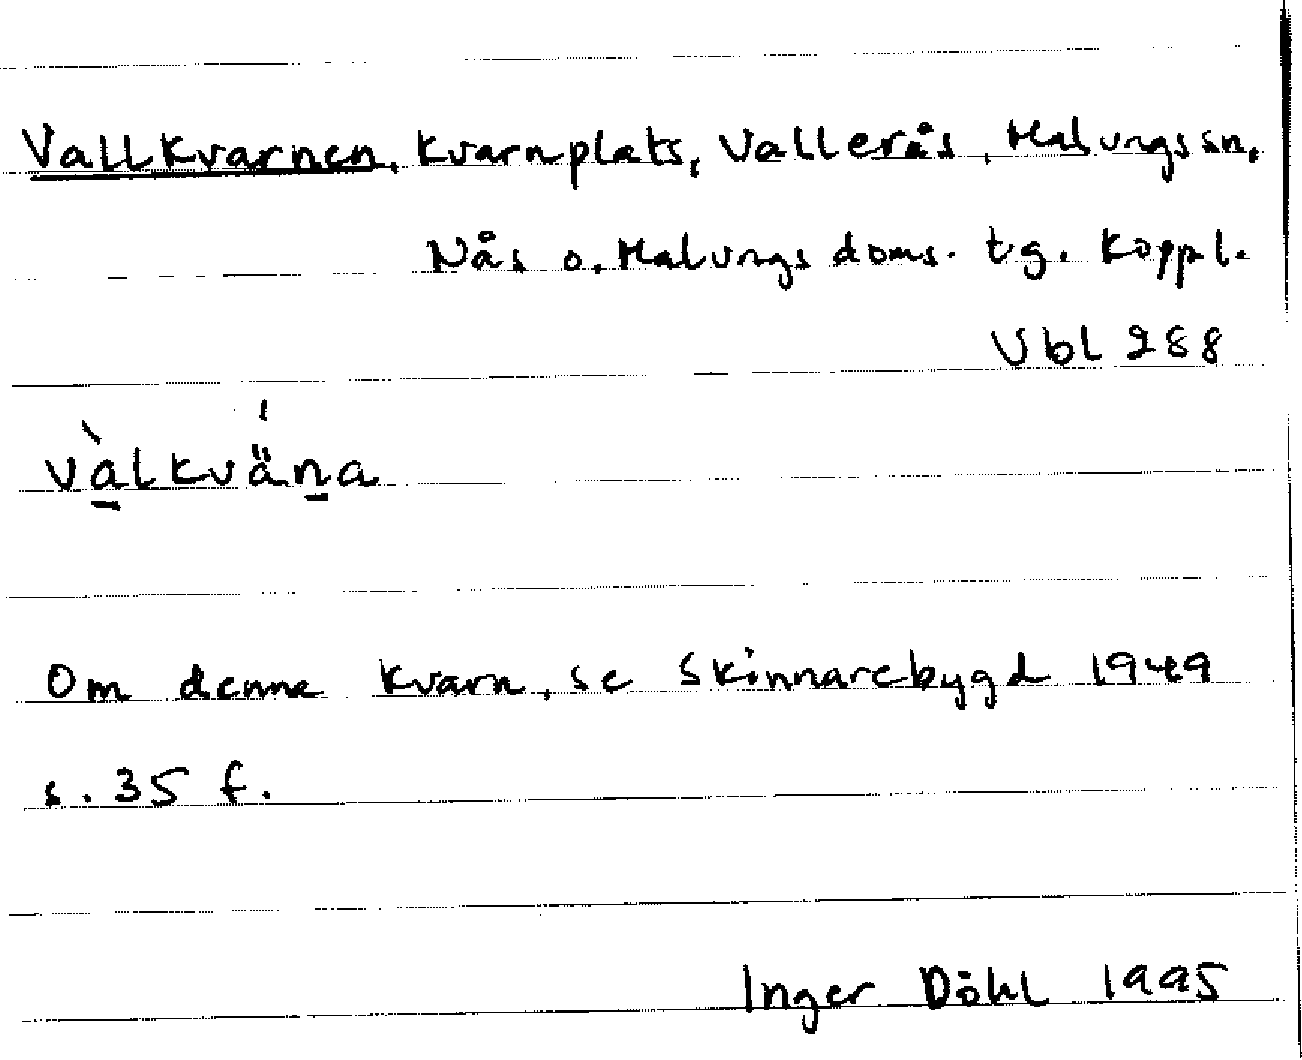 Vallkvarnen, kvarnplats, Vallerås, Malungs sn,
Nås o. Malungs doms. tg. Koppl.
Ubl 288
và̲lkvän̲a
Om denna kvarn, se Skinnarebygd 1949
s. 35 f.
Inger Döhl 1995